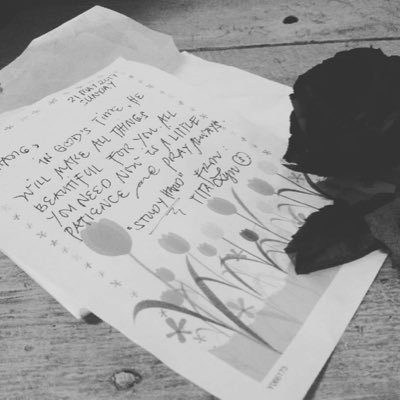 21 MAY 2017
SUNDAY
IN GOD'S TIME, HE
WILL MAKE ALL THINGS
BEAUTIFUL FOR YOU. ALL
YOU NEED NOW IS A LITTLE
PATIENCE & PRAY ALWAYS
"STUDY HARD" FROM: